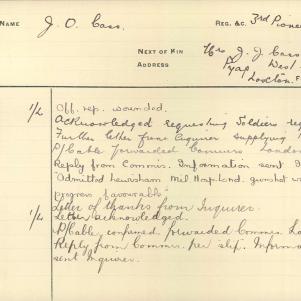 NAME J. O. Cass. REG. &C. 3rd Pionee
NEXT OF KIN Mrs J. J. Cass
ADDRESS Pyap West
Loxton.
1/2 Off. rep. wounded.
Acknowledged requesting Soldiers reg
Further letter from Inquirer supplying
P/Cable forwarded Commrs London
Reply from Commis. Information sent I
"Admitted Lewisham Mil Hosp. Lond. gunshot w
progress favourable"
Letter of thanks from Inquirer.
1/4 Letter acknowledged.
P/Cable, confirmed, forwarded Commrs. Lo
Reply from Commrs. per slip. Informa
sent Inquirer.